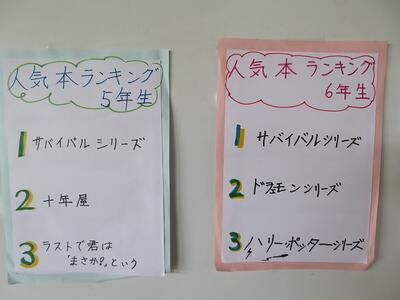 人気本ランキング
5年生
1 サバイバルシリーズ
2 十年屋
3 ラストで君は
「まさか!」という
人気本ランキング
6年生
1 サバイバルシリーズ
2 ドラえもんシリーズ
3 ハリー・ポッターシリーズ